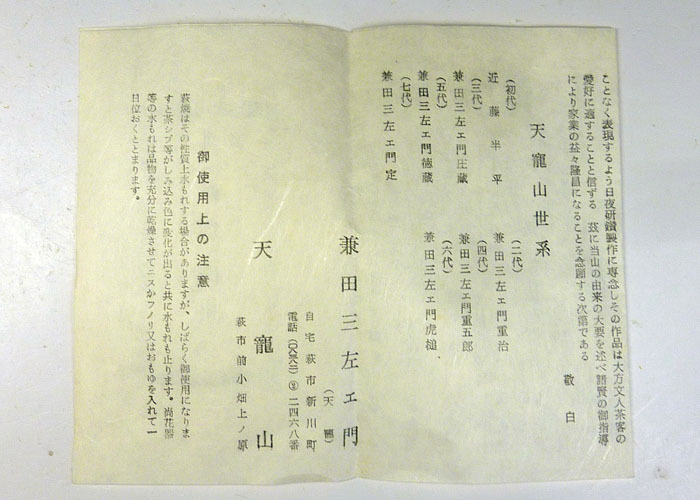 ことなく表現するよう日夜研鑚製作に専念しその作品は大方文人茶客の
愛好に適することと信ずる　茲に当山の由来の大要を述べ諸賢の御指導
により家業の益々隆昌になることを念願する次第である
敬白
天寵山世系
(初代)
近藤半平
(二代)
兼田三左ェ門重治
(三代)
兼田三左ェ門庄蔵
(四代)
兼田三左ェ門重五郎
(五代)
兼田三左ェ門徳蔵
(六代)
兼田三左ェ門虎槌
(七代)
兼田三左ェ門定
兼田三左ェ門
(天寵)
自宅萩市新川町
二四六八番
天寵山
萩市前小畑上ノ原
御使用上の注意
萩焼はその性質上水もれする場合がありますが、しばらく御使用になりま
すと茶シブ等がしみ込み色に変化が出ると共に水もれも止ります。尚花器
等の水もれは品物を充分に乾燥させてニスかフノリ又はおもゆを入れて一
日位おくととまります。